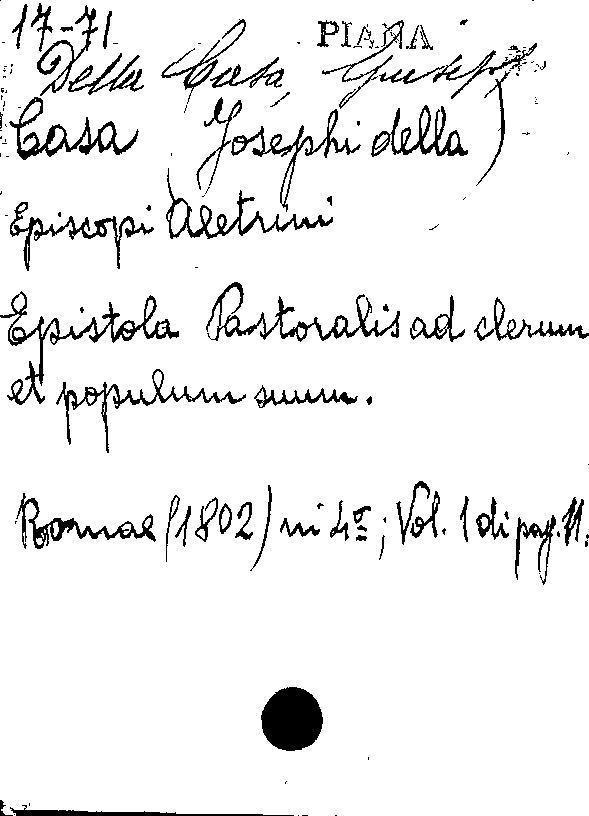 17-71 PIANA
Della Casa, Giuseppe
Casa (Josephi della)
Episcopi Aletrini
Epistola Pastoralis ad clerum
et populum suum.
Romae (1802) in 4º; Vol. 1 di pag. 11.